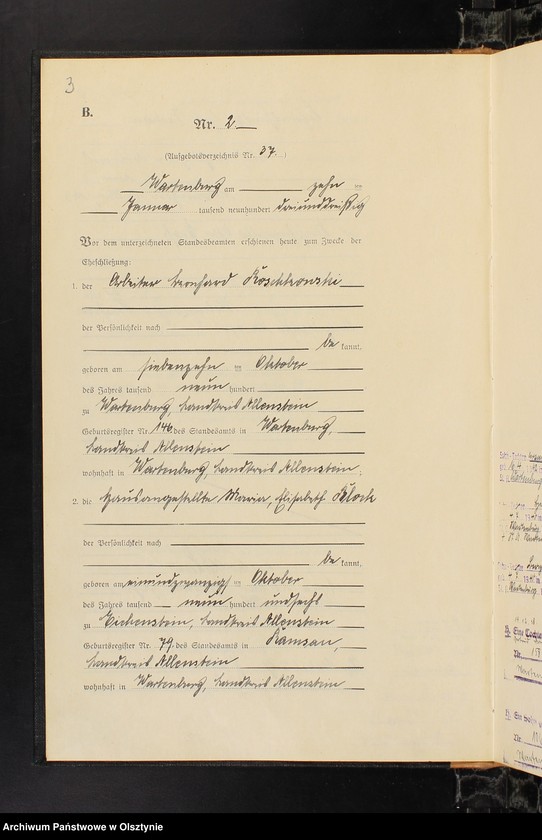 3
B.
Nr. 2
(Aufgebotsverzeichnis Nr. 37.)
Wartenburg am zehn ten
Januar tausend neunhundert dreiunddreißig
Vor dem unterzeichneten Standesbeamten erschienen heute zum Zwecke der
Eheschließung:
1. der Arbeiter Bernhard Koschkowski
der Persönlichkeit nach
be kannt,
geboren am siebenzehn ten Oktober
des Jahres tausend neun hundert
zu Wartenburg, Landkreis Allenstein
Geburtsregister Nr. 146 des Standesamts in Wartenburg,
Landkreis Allenstein
wohnhaft in Wartenburg, Landkreis Allenstein;
2. die Hausangestellte Maria, Elisabeth
der Persönlichkeit nach
be kannt,
geboren am einundzwanzig ten Oktober
des Jahres tausend neun hundert undsechs
zu Landkreis Allenstein
Geburtsregister Nr. 79, des Standesamts in Ramsau,
Landkreis Allenstein
wohnhaft in Wartenburg, Landkreis Allenstein
Archiwum Państwowe w Olsztynie